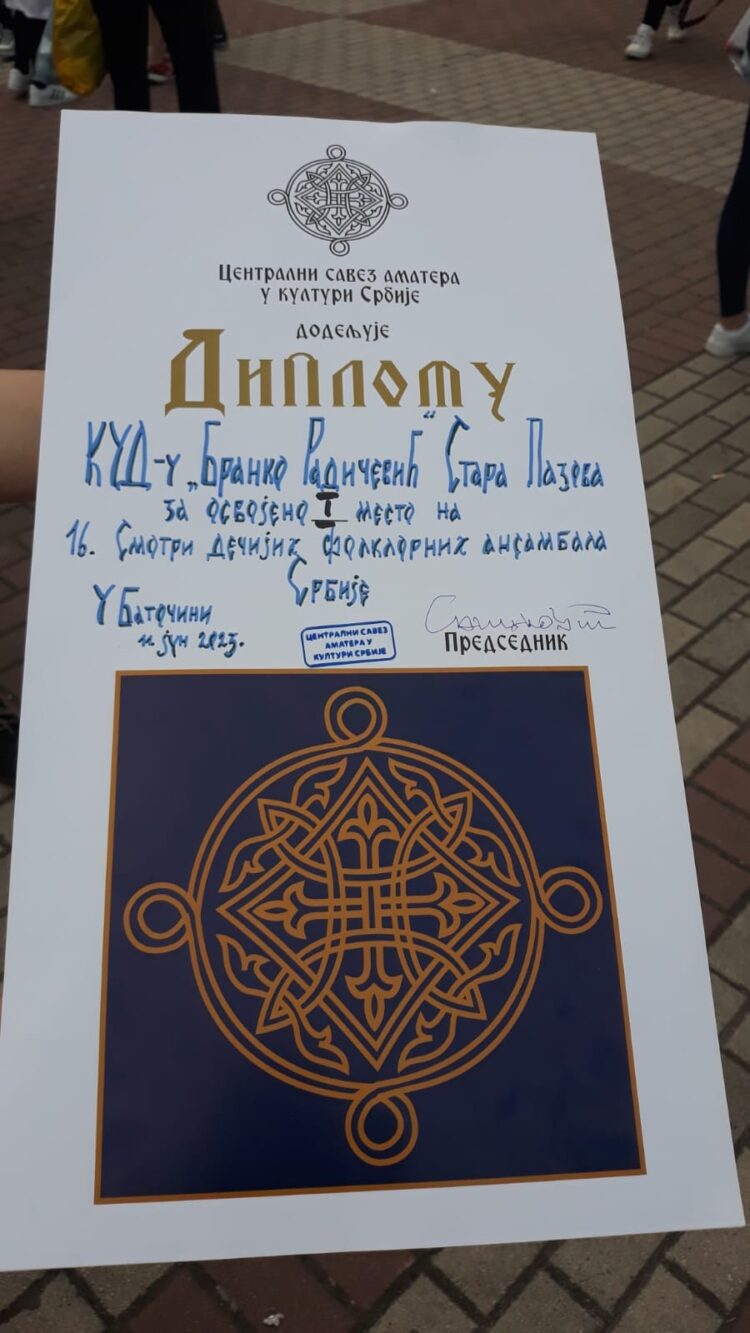 Централни савез аматера
у култури Србије
додељује
Диплому
КУД-у „Бранко Радичевић“ Стара Пазова
за освојено I место на
16. Смотри дечијих фолклорних ансамбала
Србије
У Баточини
11. јун 2023.
ЦЕНТРАЛНИ САВЕЗ
АМАТЕРА У
КУЛТУРИ СРБИЈЕ
Председник